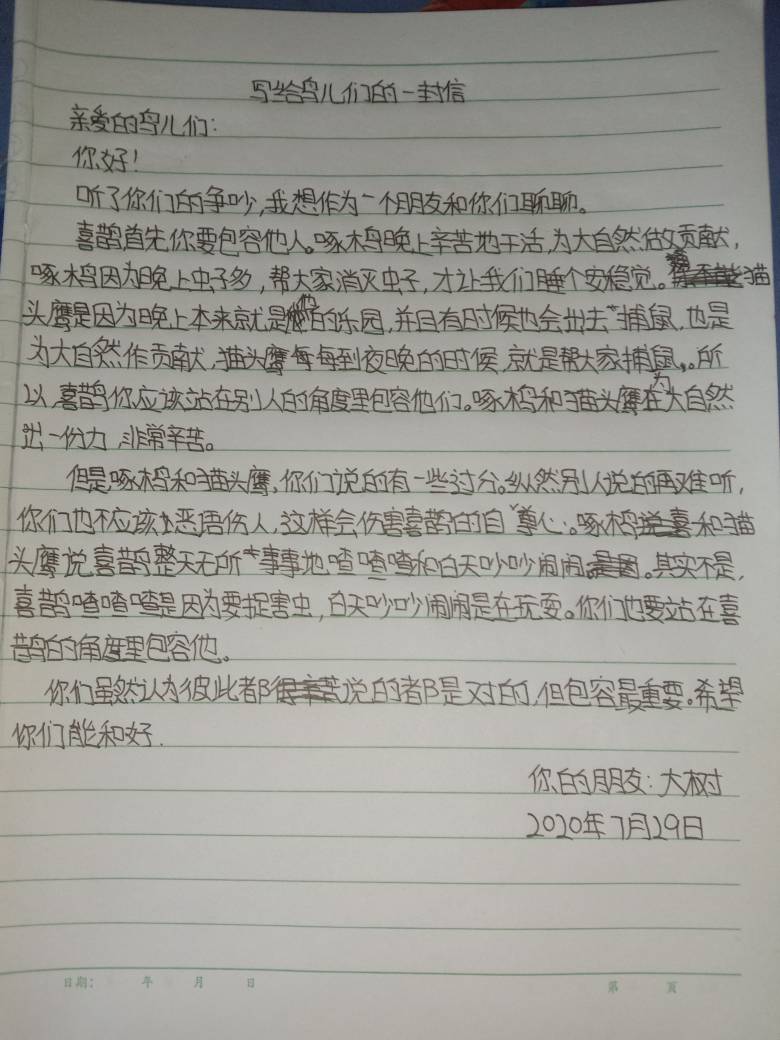 写给鸟儿们的一封信
亲爱的鸟儿们：
你好！
听了你们的争吵，我想作为一个朋友和你们聊聊。
喜鹊首先你要包容他人。啄木鸟晚上辛苦地干活，为大自然做贡献，
啄木鸟因为晚上虫子多，帮大家消灭虫子，才让我们睡个安稳觉。猫
头鹰是因为晚上本来就是他的乐园，并且有时候也会出去捕鼠，也是
为大自然作贡献，猫头鹰每每到夜晚的时候，就是帮大家捕鼠。所
以，喜鹊你应该站在别人的角度里包容他们。啄木鸟和猫头鹰在为大自然
出一份力，非常辛苦。
但是啄木鸟和猫头鹰，你们说的有一些过分。纵然别人说的再难听，
你们也不应该恶语伤人，这样会伤害喜鹊的自尊心。啄木鸟和猫
头鹰说喜鹊整天无所事事地喳喳喳和白天吵吵闹闹。其实不是，
喜鹊喳喳喳是因为要捉害虫，白天吵吵闹闹是在玩耍。你们也要站在喜
鹊的角度里包容他。
你们虽然认为彼此都说的都是对的，但包容最重要。希望
你们能和好.
你的朋友：大树
2020年7月29日
日期： 年 月 日
第 页